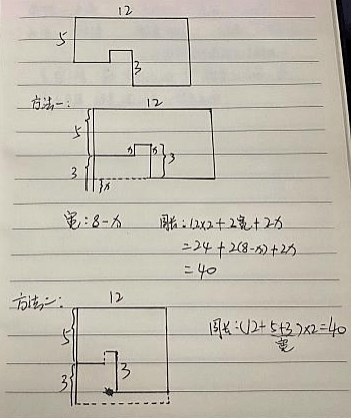 12
5
3
方法一:
12
5
x
x
3
3
x
宽:8-x
周长:12×2+2宽+2x
=24+2(8-x)+2x
=40
方法二:
12
5
3
3
周长:(12+5+3)×2=40
宽